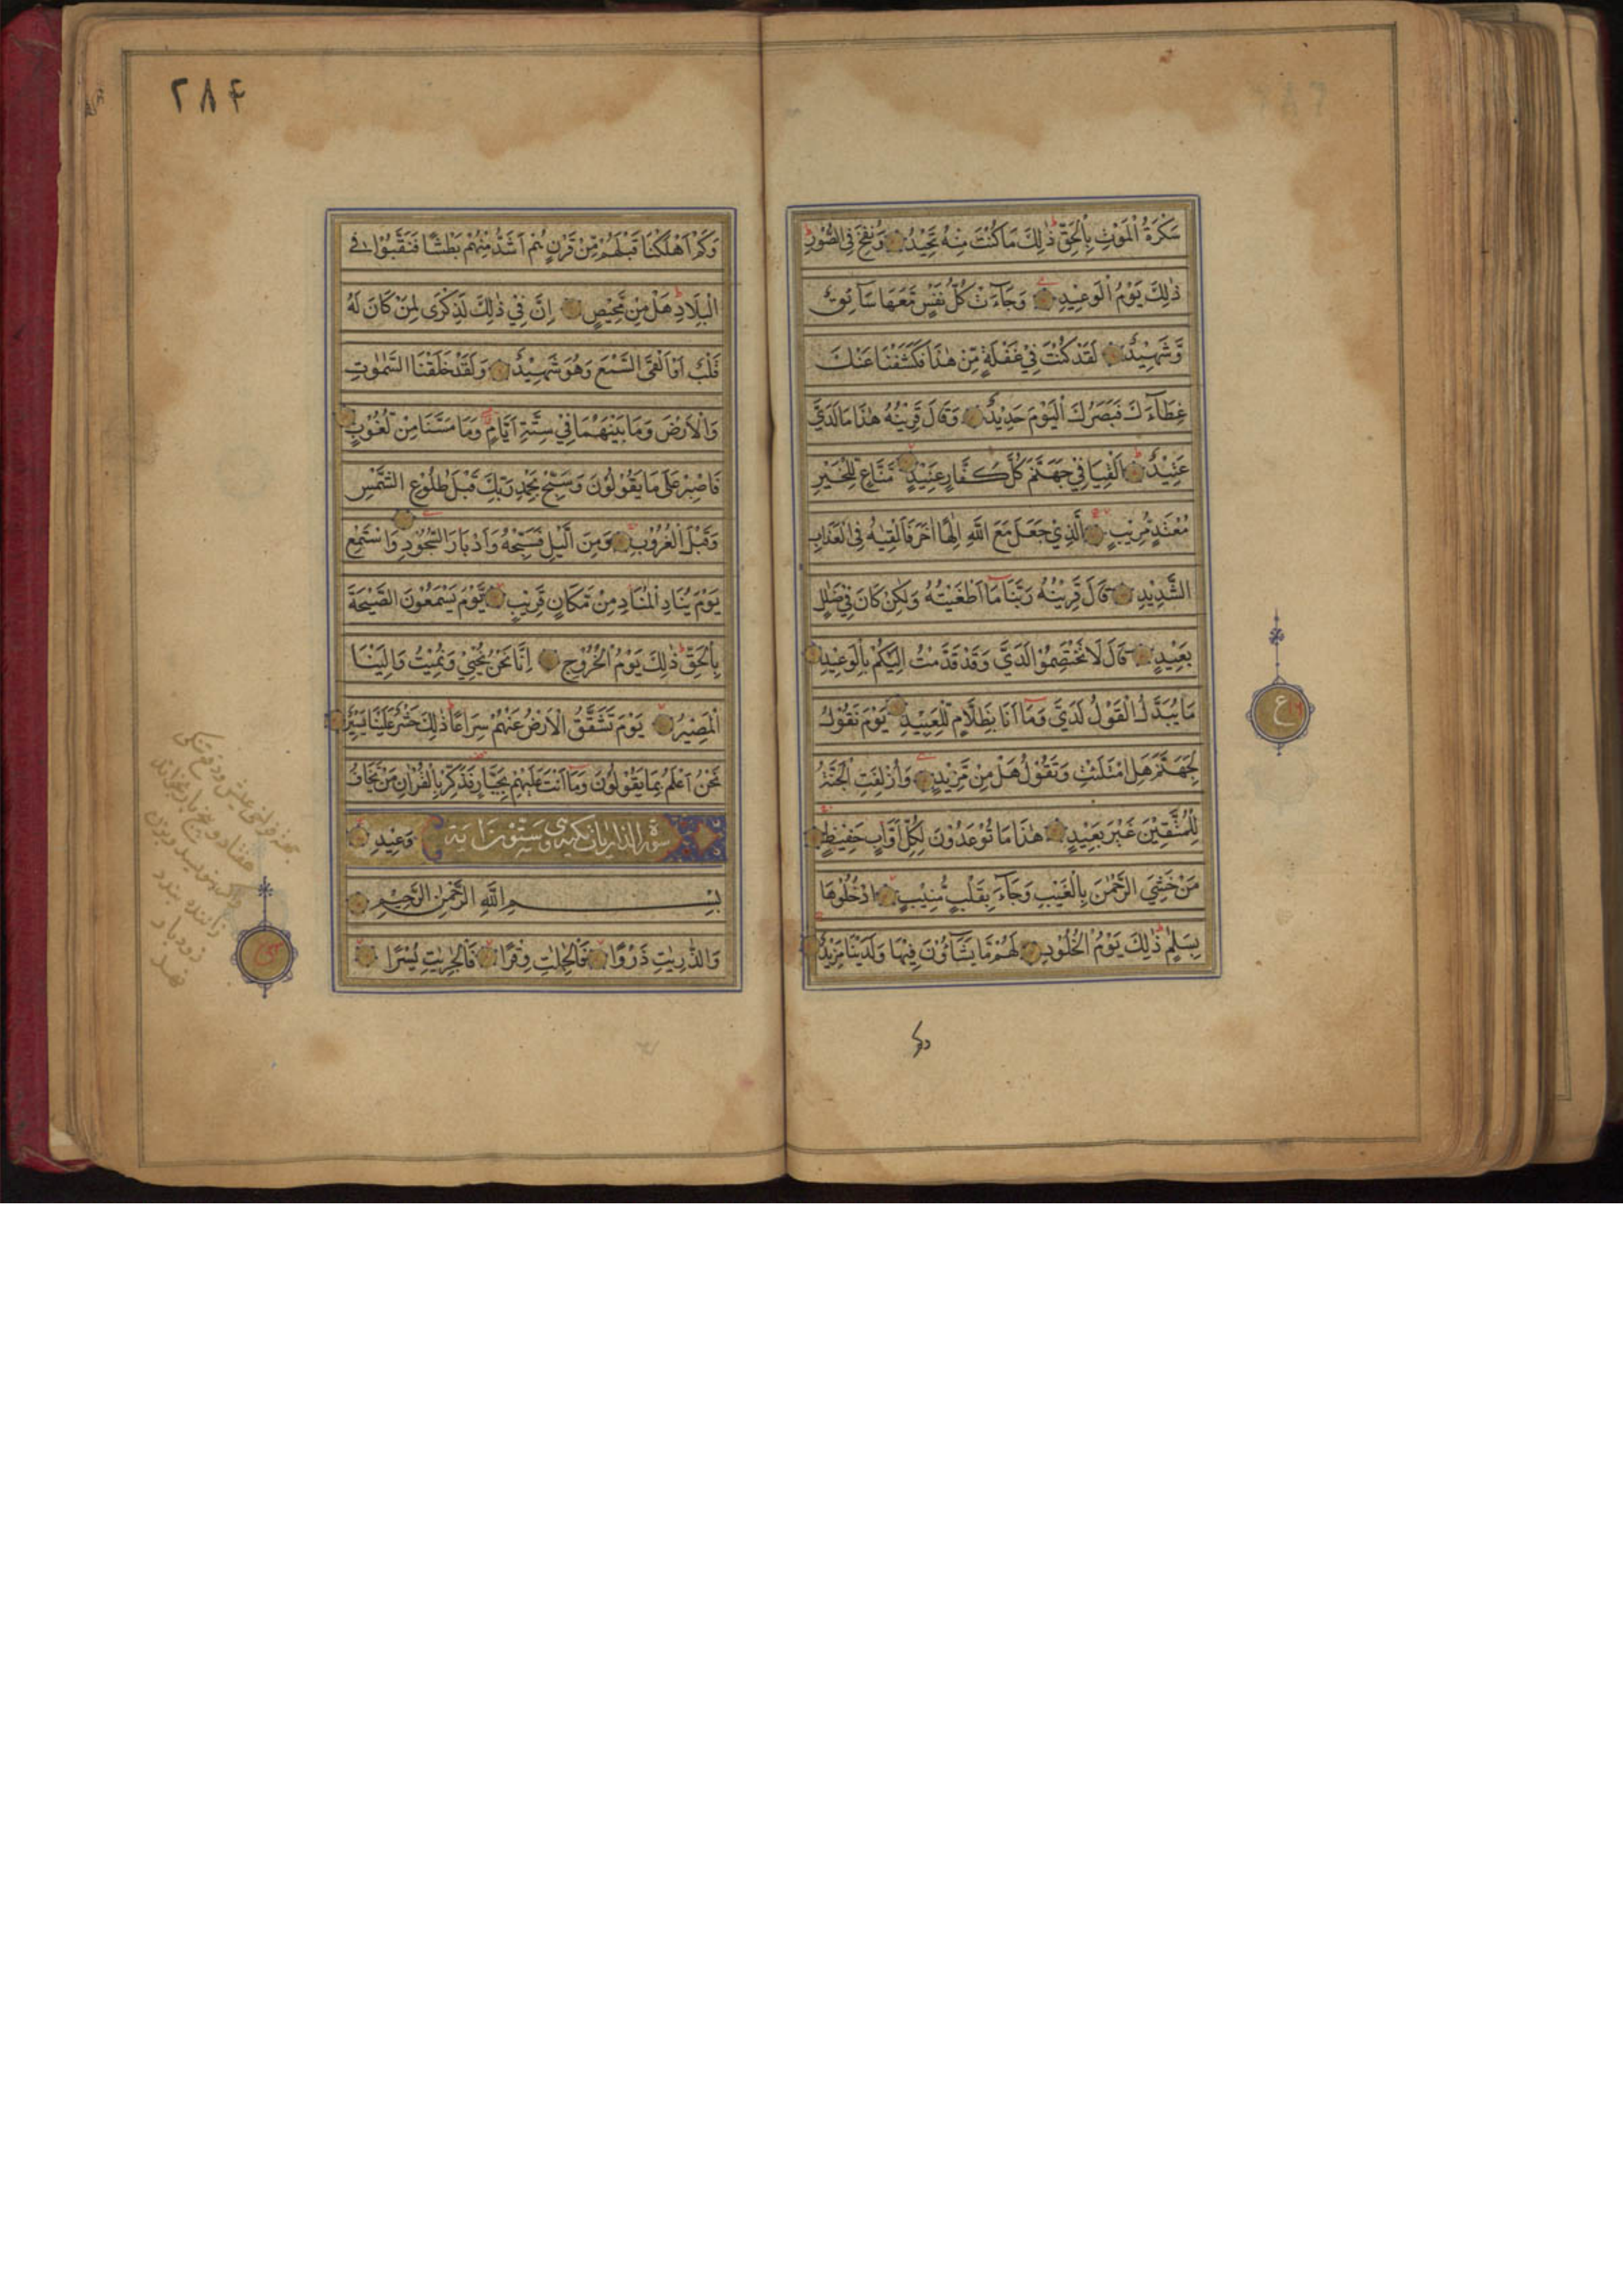 سَكْرَةُ الْمَوْتِ بِالْحَقِّ ذٰلِكَ مَا كُنْتَ مِنْهُ تَحِيْدُ وَنُفِخَ فِى الصُّوْرِ
ذٰلِكَ يَوْمُ الْوَعِيْدِ وَجَآءَتْ كُلُّ نَفْسٍ مَّعَهَا سَآئِقٌ
وَّشَهِيْدٌ لَقَدْ كُنْتَ فِيْ غَفْلَةٍ مِّنْ هٰذَا فَكَشَفْنَا عَنْكَ
غِطَآءَكَ فَبَصَرُكَ الْيَوْمَ حَدِيْدٌ وَقَالَ قَرِيْنُهُ هٰذَا مَا لَدَيَّ
عَتِيْدٌ اَلْقِيَا فِيْ جَهَنَّمَ كُلَّ كَفَّارٍ عَنِيْدٍ مَنَّاعٍ لِلْخَيْرِ
مُعْتَدٍ مُّرِيْبٍ اَلَّذِيْ جَعَلَ مَعَ اللّٰهِ اِلٰهًا اٰخَرَ فَاَلْقِيٰهُ فِى الْعَذَابِ
الشَّدِيْدِ قَالَ قَرِيْنُهُ رَبَّنَا مَا اَطْغَيْتُهُ وَلٰكِنْ كَانَ فِيْ ضَلٰلٍ
بَعِيْدٍ قَالَ لَا تَخْتَصِمُوْا لَدَيَّ وَقَدْ قَدَّمْتُ اِلَيْكُمْ بِالْوَعِيْدِ
مَا يُبَدَّلُ الْقَوْلُ لَدَيَّ وَمَا اَنَا بِظَلَّامٍ لِّلْعَبِيْدِ يَوْمَ نَقُوْلُ
لِجَهَنَّمَ هَلِ امْتَلَئْتِ وَتَقُوْلُ هَلْ مِنْ مَّزِيْدٍ وَاُزْلِفَتِ الْجَنَّةُ
لِلْمُتَّقِيْنَ غَيْرَ بَعِيْدٍ هٰذَا مَا تُوْعَدُوْنَ لِكُلِّ اَوَّابٍ حَفِيْظٍ
مَنْ خَشِيَ الرَّحْمٰنَ بِالْغَيْبِ وَجَآءَ بِقَلْبٍ مُّنِيْبٍ ادْخُلُوْهَا
بِسَلٰمٍ ذٰلِكَ يَوْمُ الْخُلُوْدِ لَهُمْ مَّا يَشَآؤُنَ فِيْهَا وَلَدَيْنَا مَزِيْدٌ
ع
وكم
٢٨۴
وَكَمْ اَهْلَكْنَا قَبْلَهُمْ مِّنْ قَرْنٍ هُمْ اَشَدُّ مِنْهُمْ بَطْشًا فَنَقَّبُوْا فِي
الْبِلَادِ هَلْ مِنْ مَّحِيْصٍ اِنَّ فِيْ ذٰلِكَ لَذِكْرٰى لِمَنْ كَانَ لَهُ
قَلْبٌ اَوْ اَلْقَى السَّمْعَ وَهُوَ شَهِيْدٌ وَلَقَدْ خَلَقْنَا السَّمٰوٰتِ
وَالْاَرْضَ وَمَا بَيْنَهُمَا فِيْ سِتَّةِ اَيَّامٍ وَمَا مَسَّنَا مِنْ لُغُوْبٍ
فَاصْبِرْ عَلٰى مَا يَقُوْلُوْنَ وَسَبِّحْ بِحَمْدِ رَبِّكَ قَبْلَ طُلُوْعِ الشَّمْسِ
وَقَبْلَ الْغُرُوْبِ وَمِنَ الَّيْلِ فَسَبِّحْهُ وَاَدْبَارَ السُّجُوْدِ وَاسْتَمِعْ
يَوْمَ يُنَادِ الْمُنَادِ مِنْ مَّكَانٍ قَرِيْبٍ يَّوْمَ يَسْمَعُوْنَ الصَّيْحَةَ
بِالْحَقِّ ذٰلِكَ يَوْمُ الْخُرُوْجِ اِنَّا نَحْنُ نُحْيِيْ وَنُمِيْتُ وَاِلَيْنَا
الْمَصِيْرُ يَوْمَ تَشَقَّقُ الْاَرْضُ عَنْهُمْ سِرَاعًا ذٰلِكَ حَشْرٌ عَلَيْنَا يَسِيْرٌ
نَحْنُ اَعْلَمُ بِمَا يَقُوْلُوْنَ وَمَا اَنْتَ عَلَيْهِمْ بِجَبَّارٍ فَذَكِّرْ بِالْقُرْاٰنِ مَنْ يَّخَافُ
وَعِيْدِ
سورة الذاريات مكية وهى ستون اية
بِسْمِ اللّٰهِ الرَّحْمٰنِ الرَّحِيْمِ
وَالذّٰرِيٰتِ ذَرْوًا فَالْحٰمِلٰتِ وِقْرًا فَالْجٰرِيٰتِ يُسْرًا